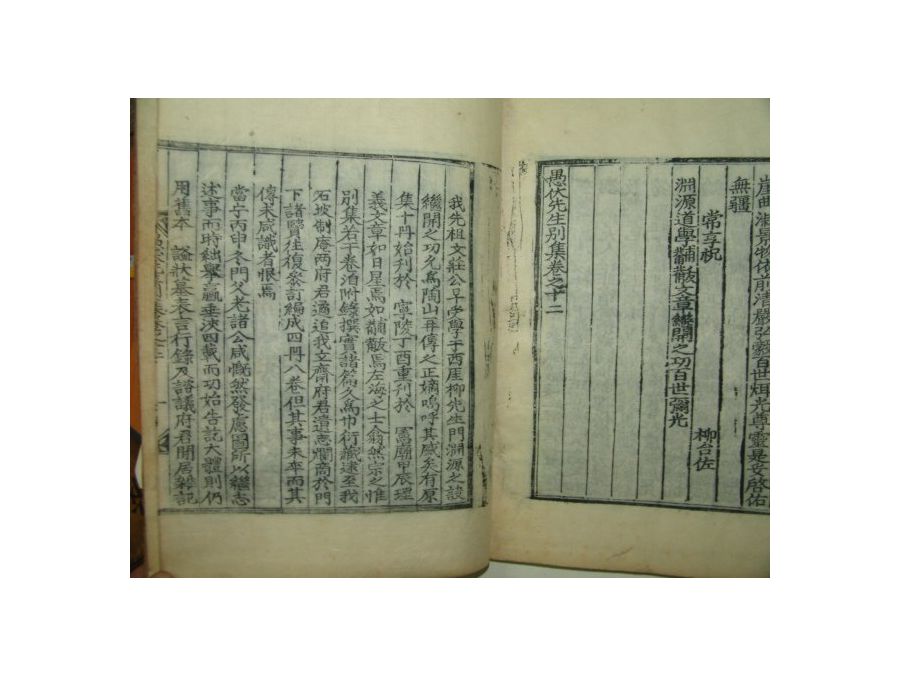 崖曲湖景物依前清嚴弘毅百世炳光尊靈是安啓佑
無疆
常享祝
柳台佐
淵源道學黼黻文章繼開之功百世彌光
愚伏先生別集卷之十二
我先祖文莊公早學于西厓柳先生門淵源之訣
繼開之功允爲陶山再傳之正嫡嗚呼其盛矣有原
集十冊始刊於 寧陵丁酉重刊於 憲廟甲辰理
義文章如日星焉如黼黻焉左海之士翕然宗之惟
別集若干卷洎附錄撰實諸篇久爲巾衍藏逮至我
石坡制庵兩府君適追我文齋府君遺志爛商於門
下諸賢往復參訂編成四冊八卷但其事未卒而其
傳未咸識者恨焉
當宁丙申冬門父老諸公咸慨然發慮圖所以繼志
述事而時絀擧贏垂浹四載而功始告訖大體則仍
用舊本 諡狀墓表言行錄及諮議府君閒居雜記